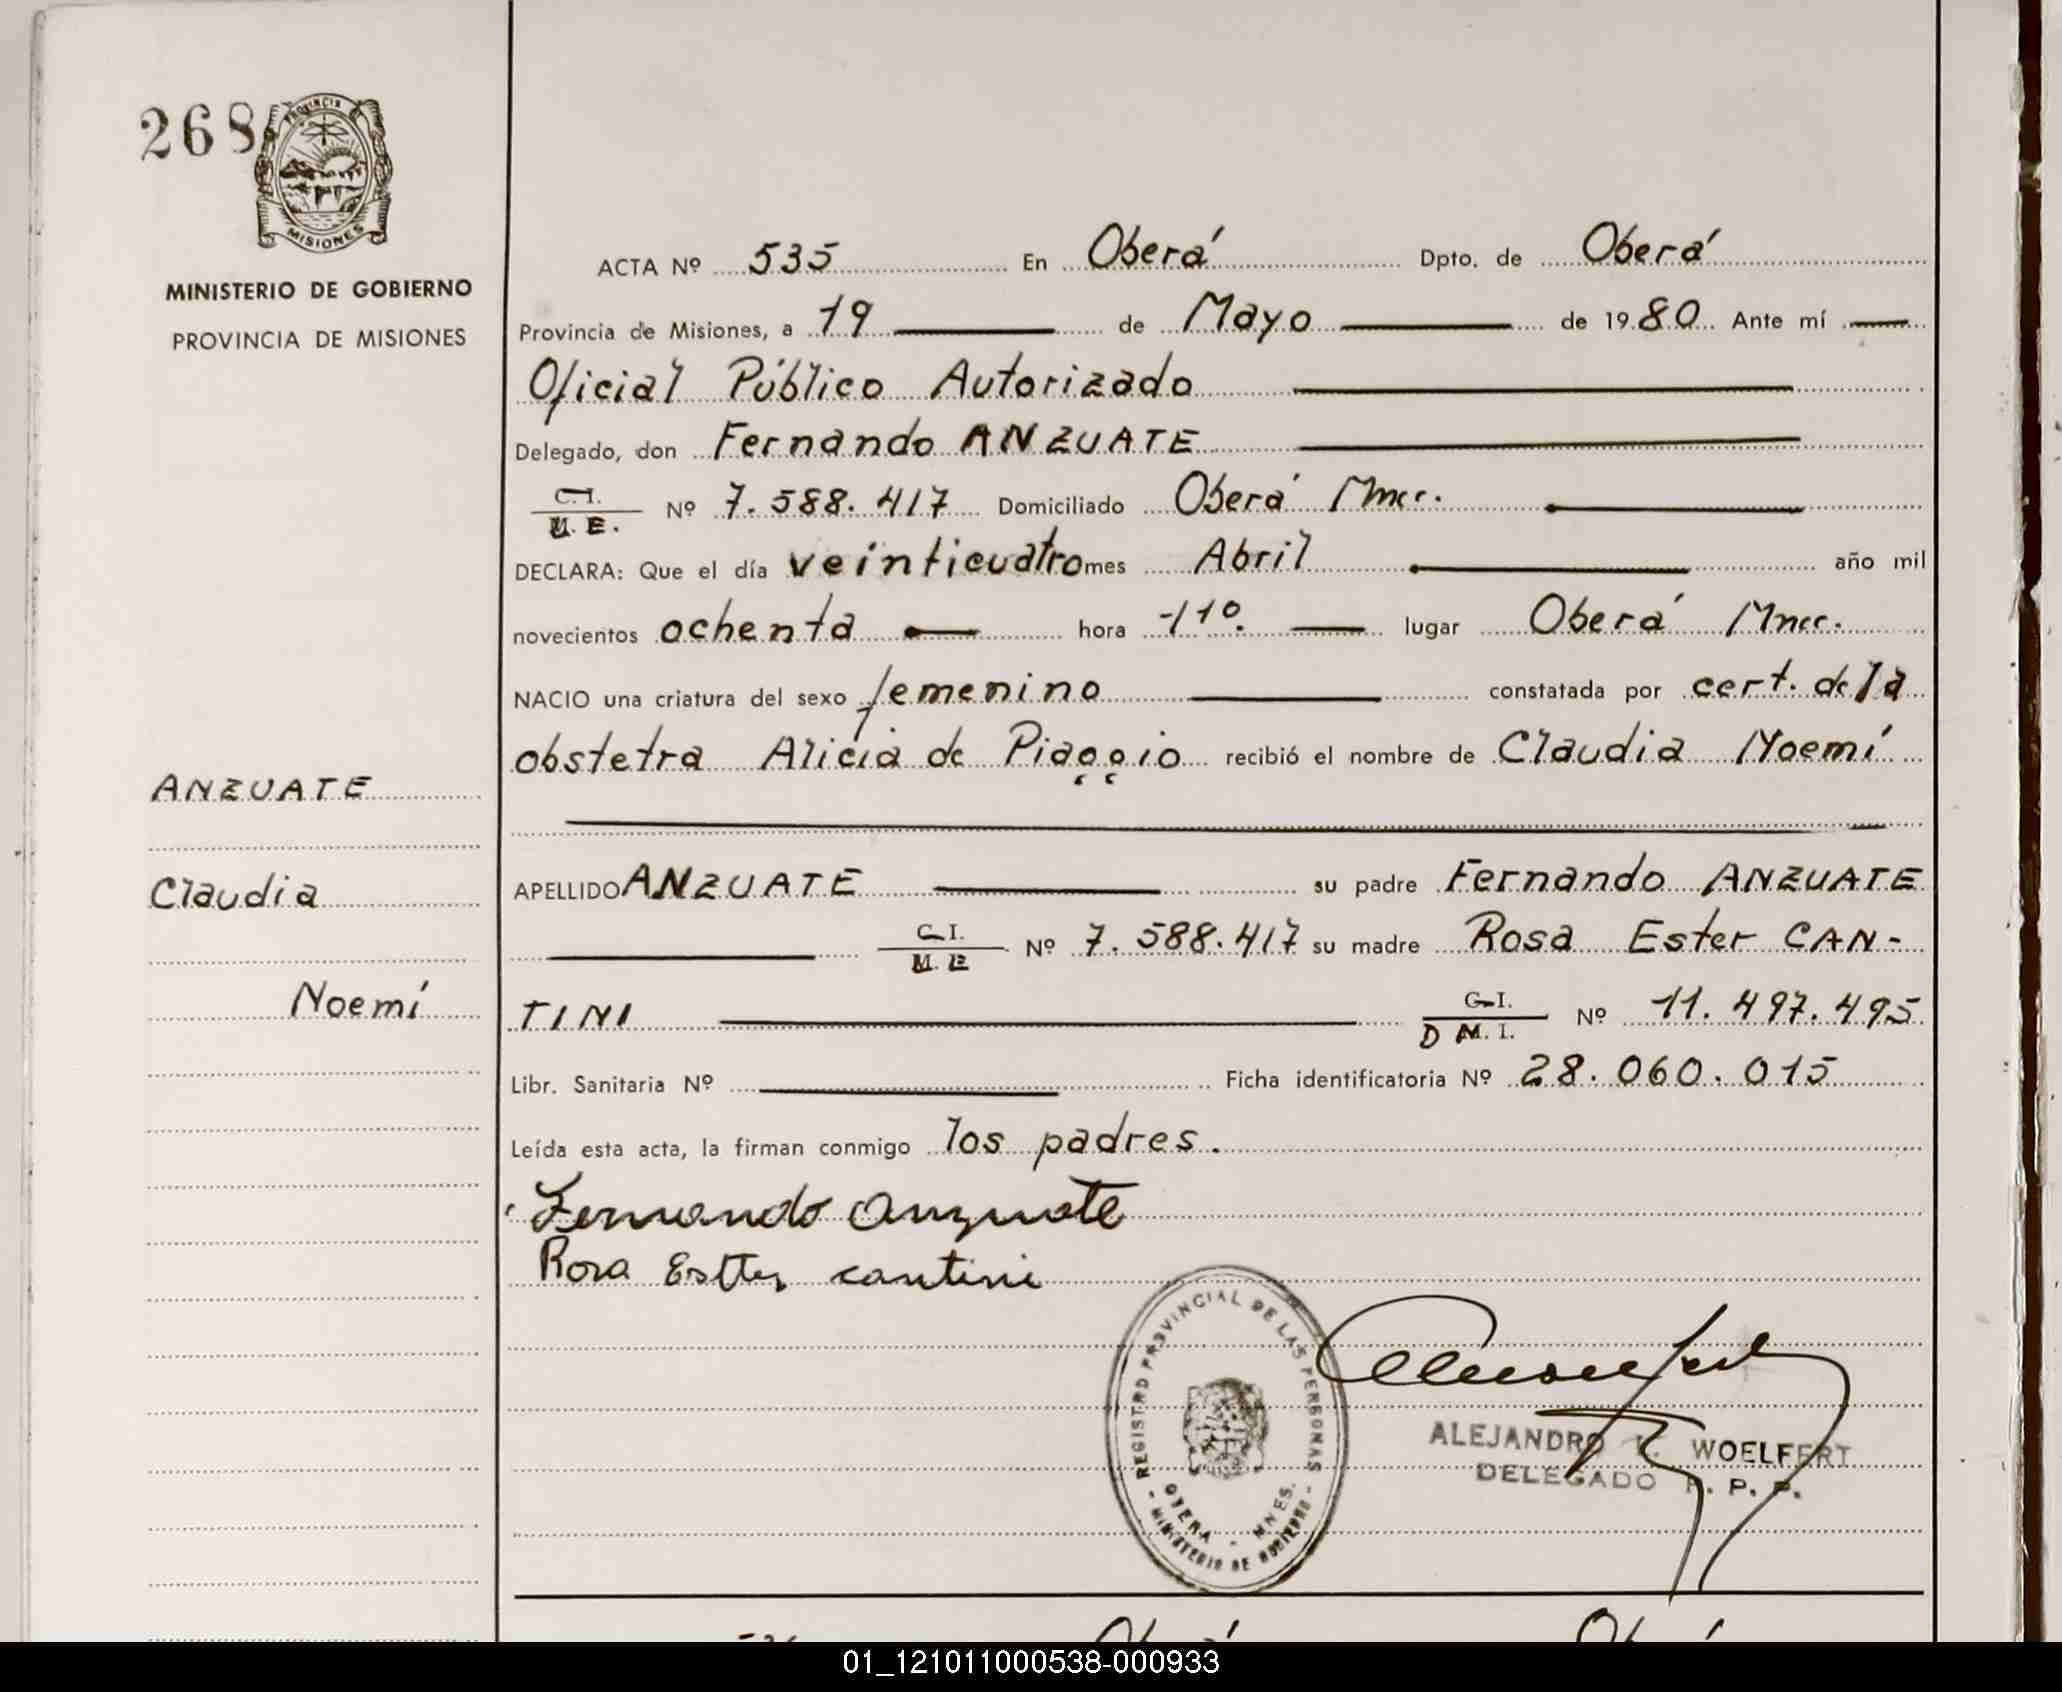 268
PROVINCIA
MISIONES
MINISTERIO DE GOBIERNO
PROVINCIA DE MISIONES
ANZUATE
Claudia
Noemí
ACTA Nº 535 En Oberá Dpto. de Oberá
Provincia de Misiones, a 19 de Mayo de 1980 Ante mí
Oficial Público Autorizado
Delegado, don Fernando ANZUATE
C.I.
M.E. Nº 7.588.417 Domiciliado Oberá Mnes.
DECLARA: Que el día veinticuatro mes Abril año mil
novecientos ochenta hora 11º. lugar Oberá Mnes.
NACIO una criatura del sexo femenino constatada por cert. de la
obstetra Alicia de Piaggio recibió el nombre de Claudia Noemí
APELLIDO ANZUATE su padre Fernando ANZUATE
C.I.
M.E Nº 7.588.417 su madre Rosa Ester CAN-
TINI C.I.
D M.I. Nº 11.497.495
Libr. Sanitaria Nº Ficha identificatoria Nº 28.060.015
Leída esta acta, la firman conmigo los padres.
Fernando Anzuate
Rosa Ester cantini
REGISTRO PROVINCIAL DE LAS PERSONAS
OBERA - MNES.
- MINISTERIO DE GOBIERNO -
ALEJANDRO WOELFERT
DELEGADO R. P. P.
Oberá Oberá
01_121011000538-000933